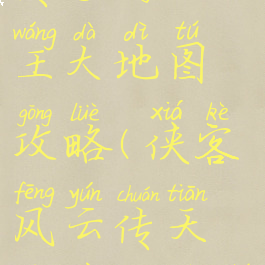 wáng dà dì tú
王大地图
gōng lüè xiá kè
攻略(侠客
fēng yún chuán tiān
风云传天